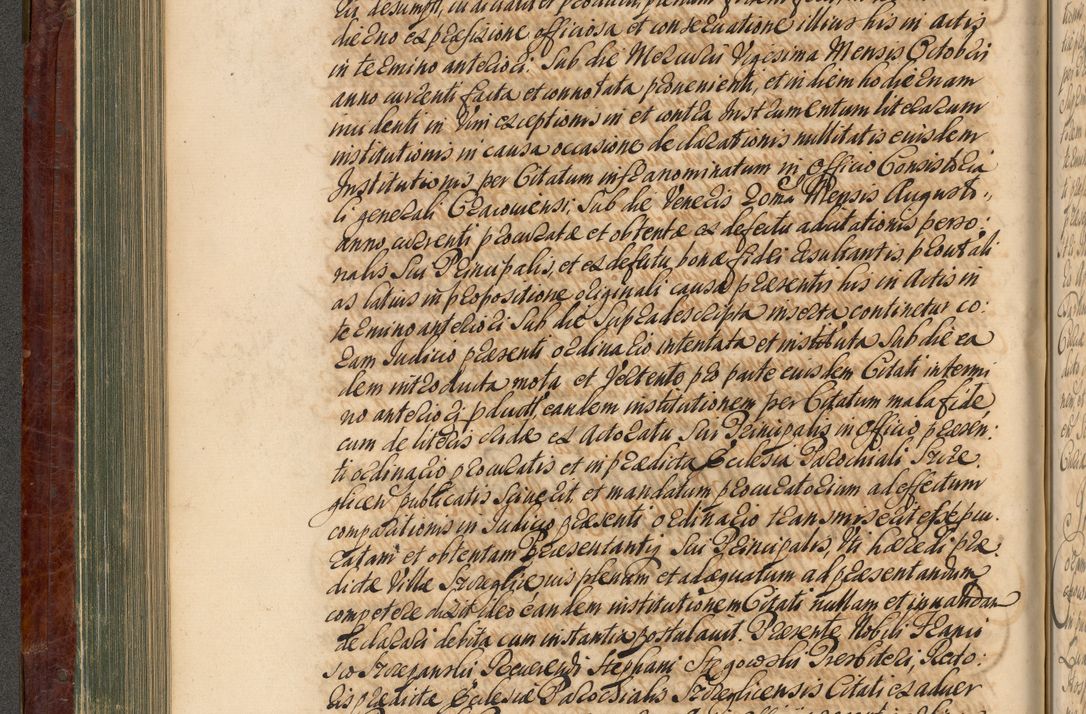 die Eno ex præfixione officiosa et conservatione illius his in Actis
in termino anteriori Sub die Mercurii Vigesima Mensis Octobris
anno currenti facta et connotata provenienti, et in diem hodiernam
incidenti in Vim exceptionis in et contra Instrumentum literarum
institutionis in causa occasione declarationis nullitatis eiusdem
Institutionis per Citatum infranominatum in Officio Consistoria
li generali Cracoviensi, Sub die Veneris 20ma Mensis Augusti
anno, currenti procuratæ et obtentæ ex defectu adcitationis perso:
nalis Sui Principalis, et ex defectu bonæ fidei resultantis, prout ali
as latius in propositione originali causæ præsentis his in Actis in
termino anteriori Sub die Supradescripta inserta continetur co:
ram Judicio præsenti ordinario intentata et instituta Sub die ea
dem introducta mota et Vertente pro parte eiusdem Citati in termi
no anteriori eandem institutionem per Citatum mala fide
cum de literis cridæ ex Actoratu Sui Principalis in Officio præsen:
ti ordinario procuratis et in prædicta Ecclesia Parochiali
publicatis Sciverit, et mandatum procuratorium ad effectum
comparationis in Judicio præsenti ordinario transmiserit esse pro:
curatam et obtentam Præsentantis Sui Principalis, Uti hæredi præ:
dictæ Villæ ius plenum et adæquatum ad præsentandum
competere dixit, ideo eandem institutionem Citati nullam et invalidam
declarari debita cum instantia postulavit. Præsente Nobili Franci
sco Szczepanski Reverendi Stephani Stegowski Presbiteri, Recto:
ris prædictæ Ecclesiæ Parochialis Citati ex adver